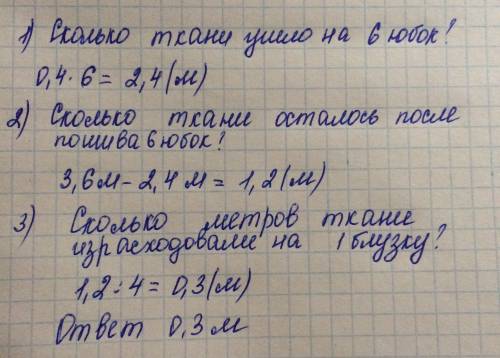 1) Сколько ткани ушло на 6 юбок?
0,4 · 6 = 2,4 (м)
2) Сколько ткани осталось после
пошива 6 юбок?
3,6 м - 2,4 м = 1,2 (м)
3) Сколько метров ткани
израсходовали на 1 блузку?
1,2 : 4 = 0,3 (м)
Ответ 0,3 м